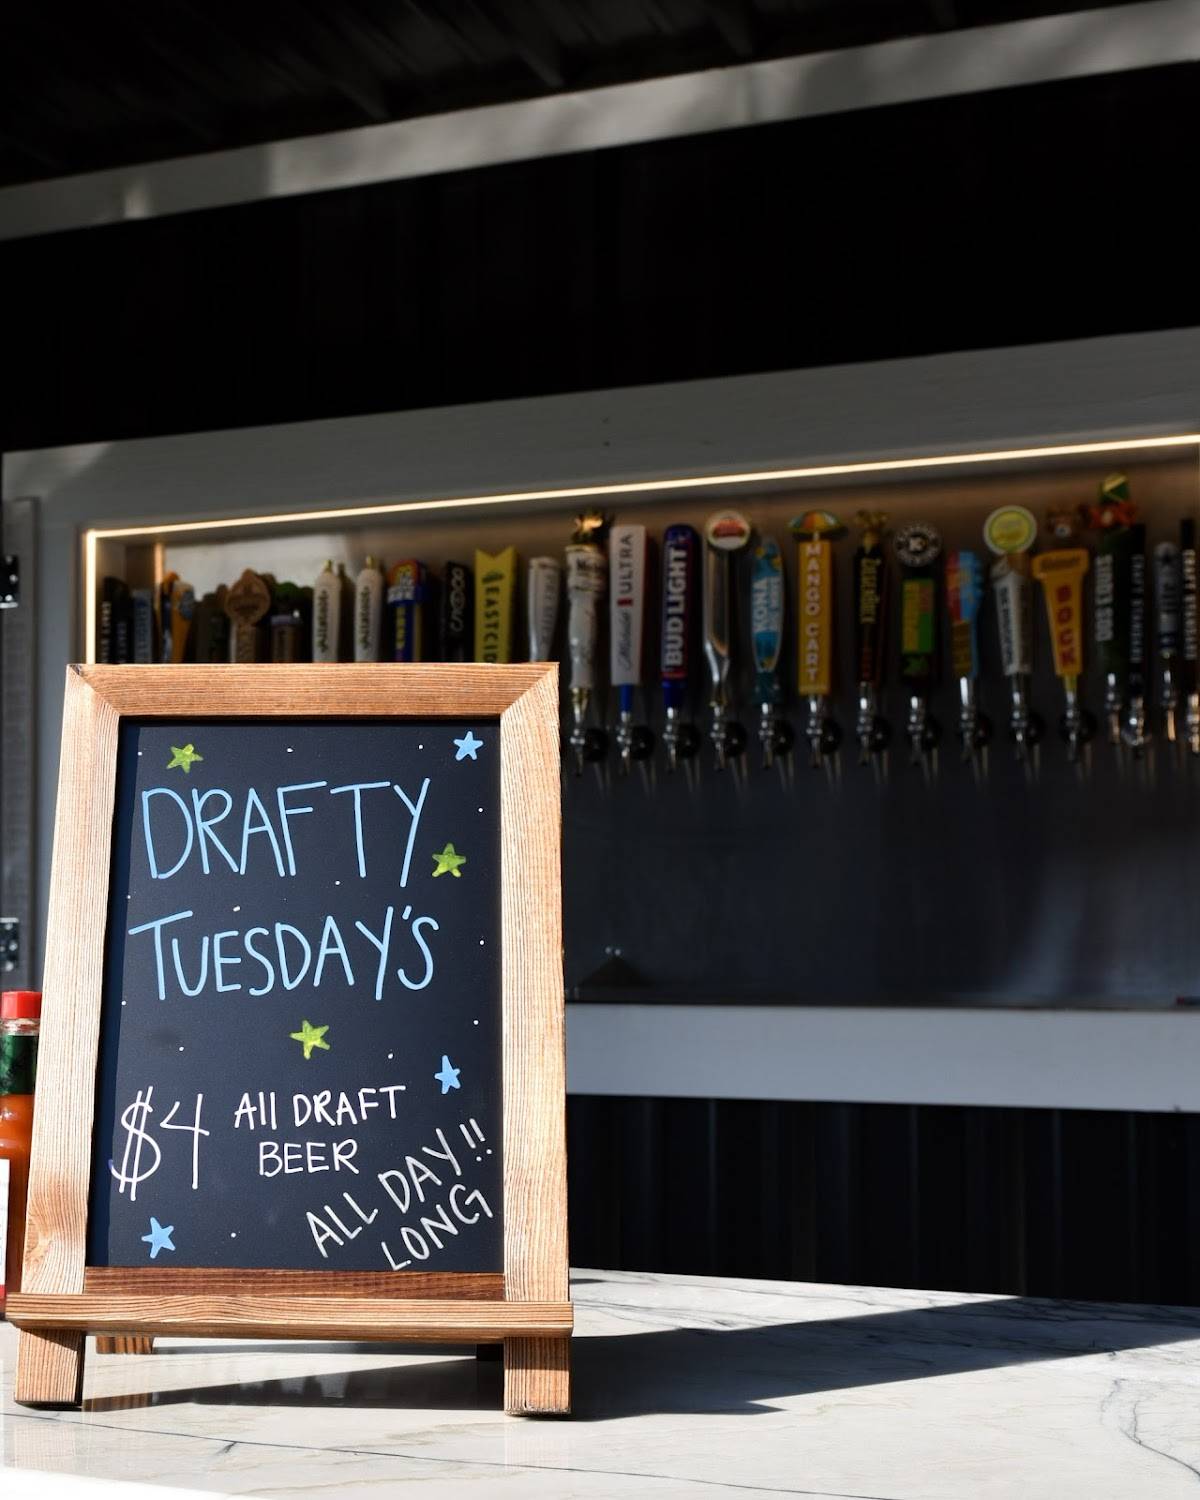 DRAFTY
TUESDAY'S
$4 All DRAFT
BEER
ALL DAY!!
LONG
Michelob
ULTRA
BUD LIGHT
KONA
MANGO CART
BOCK